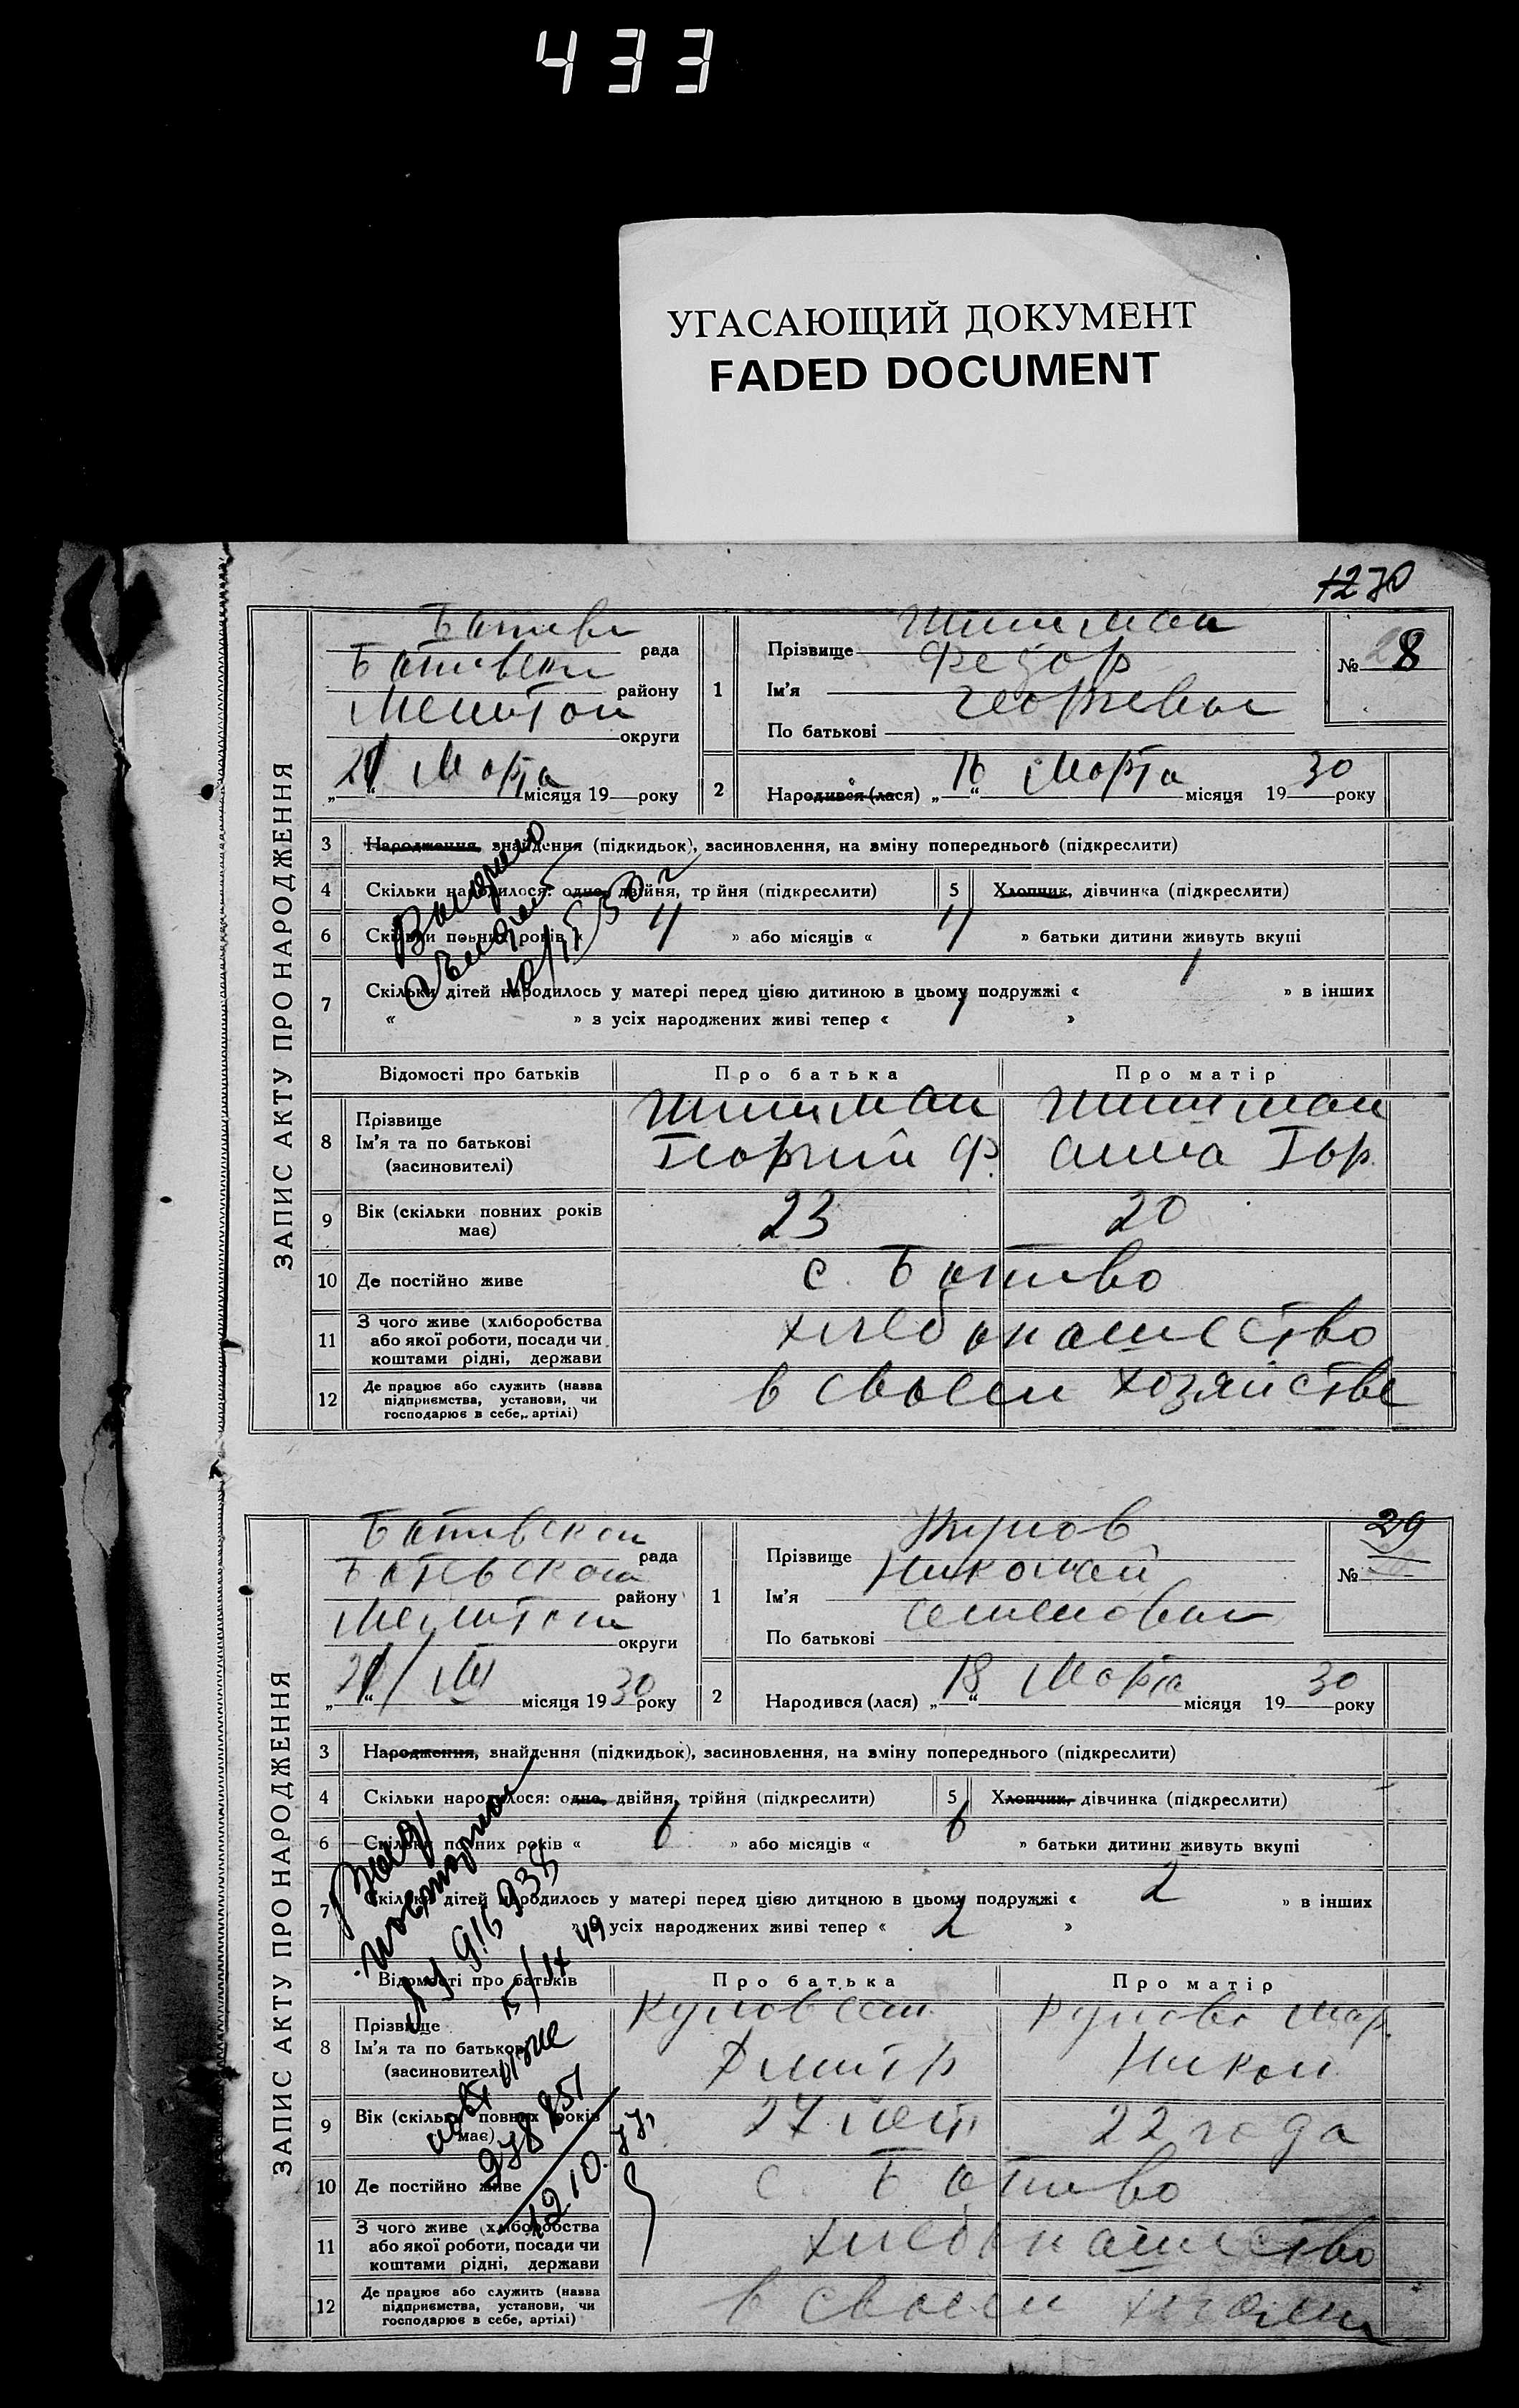 433
УГАСАЮЩИЙ ДОКУМЕНТ
FADED DOCUMENT
1270
ЗАПИС АКТУ ПРО НАРОДЖЕННЯ
рада
району
округи
21 Марта місяця 19 року
1
Прізвище Шишман
Ім'я Федор
По батькові Георгиевич
№ 28
2
Народився (лася) „16“ Марта місяця 1930 року
3 Народження, знайдення (підкидьок), засиновлення, на зміну попереднього (підкреслити)
4 Скільки народилося: одно, двійня, трійня (підкреслити)
5 Хлопчик, дівчинка (підкреслити)
6 Скільки повних років « 4 » або місяців « 4 » батьки дитини живуть вкупі
7 Скільки дітей народилось у матері перед цією дитиною в цьому подружжі « 1 » в інших
« » з усіх народжених живі тепер « 1 »
Відомості про батьків Про батька Про матір
8 Прізвище Шишман Шишман
Ім'я та по батькові Георгий Ф. Анна
(засиновителі)
9 Вік (скільки повних років має) 23 20
10 Де постійно живе с. Ботиево
11 З чого живе (хліборобства або якої роботи, посади чи коштами рідні, держави хлебопашество
12 Де працює або служить (назва підприємства, установи, чи господарює в себе, артілі) в своем хозяйстве
ЗАПИС АКТУ ПРО НАРОДЖЕННЯ
рада
району
округи
21/III місяця 1930 року
1
Прізвище
Ім'я Николай
По батькові Семенович
№ 29
2
Народився (лася) „18“ Марта місяця 1930 року
3 Народження, знайдення (підкидьок), засиновлення, на зміну попереднього (підкреслити)
4 Скільки народилося: одно, двійня, трійня (підкреслити)
5 Хлопчик, дівчинка (підкреслити)
6 Скільки повних років « 6 » або місяців « 6 » батьки дитини живуть вкупі
7 Скільки дітей народилось у матері перед цією дитиною в цьому подружжі « 2 » в інших
« » з усіх народжених живі тепер « 2 »
Відомості про батьків Про батька Про матір
8 Прізвище
Ім'я та по батькові Дмитр Никол
(засиновителі)
9 Вік (скільки повних років має) 27 лет 22 года
10 Де постійно живе с. Ботиево
11 З чого живе (хліборобства або якої роботи, посади чи коштами рідні, держави хлебопашество
12 Де працює або служить (назва підприємства, установи, чи господарює в себе, артілі) в своем